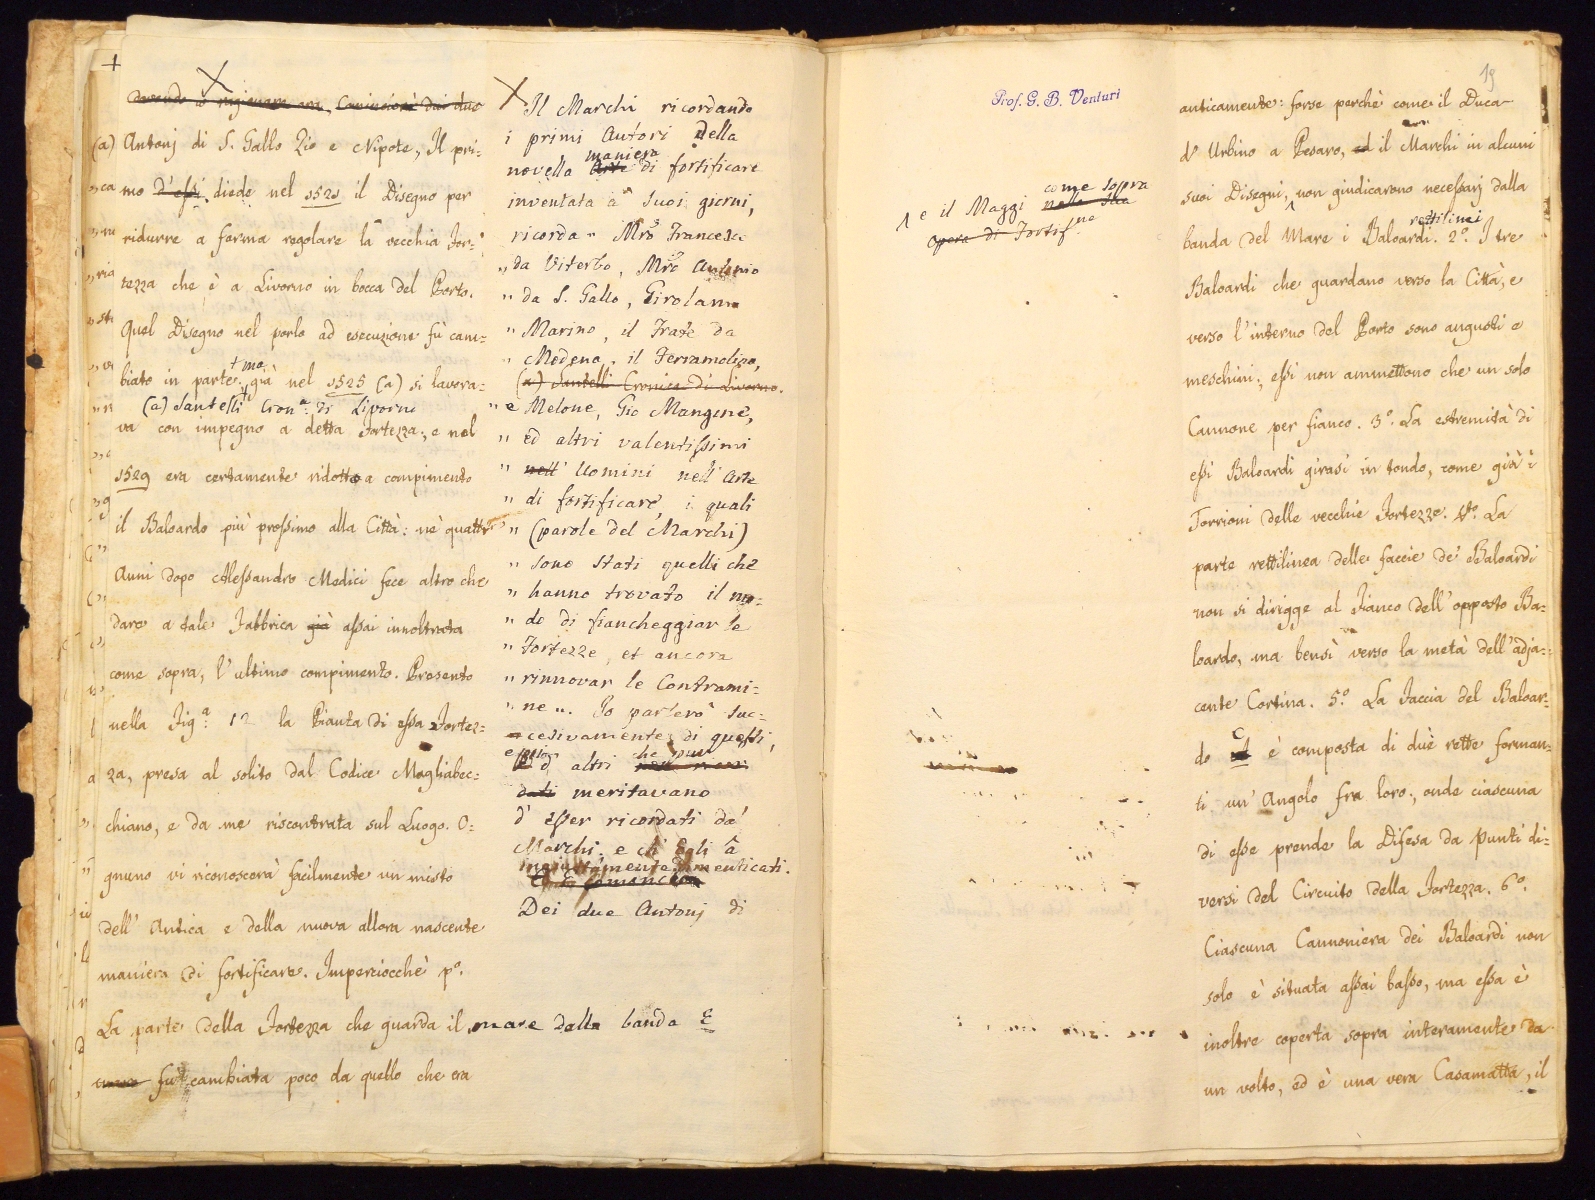 +
X
dovendo io ragionare ora
(a) Antonj di S. Gallo Zio e Nipote, Il pri=
mo d'essi diede nel 1521 il Disegno per
ridurre a forma regolare la vecchia For=
tezza che è a Livorno in bocca del Porto.
Quel Disegno nel porlo ad esecuzione fù cam=
+ ma
biato in parte. già nel 1525 (a) si lavora=
(a) Santelli Cron.ª di Livorno
va con impegno a detta Fortezza, e nel
1529 era certamente ridotto a compimento
il Baloardo più prossimo alla Città: nè quattr'
Anni dopo Alessandro Medici fece altro che
dare a tale Fabbrica già assai innoltrata
come sopra, l'ultimo compimento. Presento
nella Fig.ª 12 la Pianta di essa Fortez=
za, presa al solito dal Codice Magliabec=
chiano, e da me riscontrata sul Luogo. O=
gnuno vi riconoscerà facilmente un misto
dell' Antica e della nuova allora nascente
maniera di fortificare. Imperciocchè pº.
La parte della Fortezza che guarda il mare dalla banda E
fu cambiata poco da quello che era
X Il Marchi ricordando
i primi Autori della
maniera
novella Arte di fortificare
inventata a' suoi giorni,
ricorda " Mrº Francesco
" da Viterbo, Mrº Antonio
" da S. Gallo, Girolamo
" Marino, il Frate da
" Modena, il Ferramolino,
(a) Santelli Cronica di Livorno.
" e Melone, Gio Mangone,
" ed altri valentissimi
" nell' Uomini nell' Arte
" di fortificare, i quali
" (parole del Marchi)
" sono stati quelli che
" hanno trovato il mo=
" do di fiancheggiar le
" Fortezze, et ancora
" rinnovar le Contrami=
" ne ". Io parlerò suc=
cesivamente di questi,
e d' altri che pur
dati meritavano
d' esser ricordati da'
Marchi, e ch' Egli à
ingiustamente dimenticati.
Dei due Antonj di
Prof. G. B. Venturi
come sopra
e il Maggi nella sua
opera di Fortif.ne
19
anticamente: forse perchè come il Duca
d' Urbino a Pesaro, ed il Marchi in alcuni
suoi Disegni, non giudicarono necessarj dalla
rettilinei
banda del Mare i Baloardi. 2º. I tre
Baloardi che guardano verso la Città, e
verso l'interno del Porto sono angusti e
meschini; essi non ammettono che un solo
Cannone per fianco. 3º. La estremità di
essi Baloardi girasi in tondo, come già i
Torrioni delle vecchie Fortezze. 4º. La
parte rettilinea delle faccie de' Baloardi
non si dirigge al Fianco dell' opposto Ba=
loardo, ma bensì verso la metà dell' adja=
cente Cortina. 5º La Faccia del Baloar=
C
do è composta di due rette forman=
ti un' Angolo fra loro, onde ciascuna
di esse prende la Difesa da Punti di=
versi del Circuito della Fortezza. 6º.
Ciascuna Cannoniera dei Baloardi non
solo è situata assai basso, ma essa è
inoltre coperta sopra interamente da
un volto, ed è una vera Casamatta, il